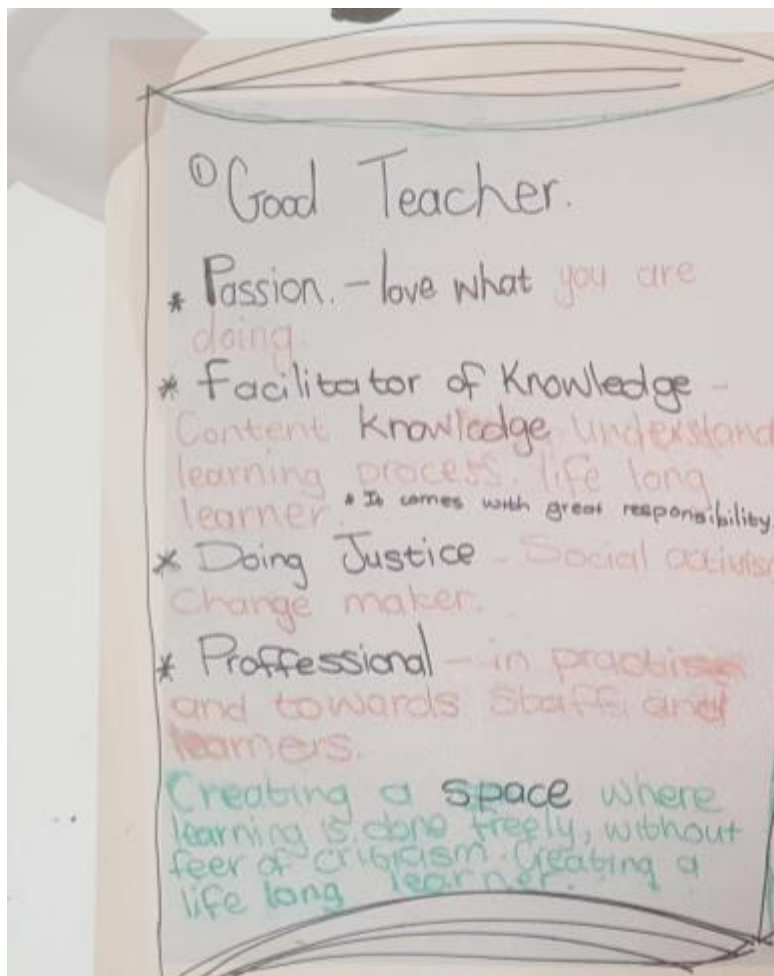 ① Good Teacher.
* Passion. - love what you are
doing.
* Facilitator of Knowledge -
Content knowledge understand
learning process. life long
learner. * It comes with great responsibility.
* Doing Justice - Social activism
Change maker.
* Proffessional - in practise
and towards staff and
learners.
Creating a space where
learning is done freely, without
feer of criticism. Creating a
life long learner.